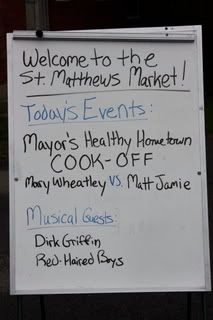 Welcome to the
St. Matthews Market!
Today's Events:
Mayor's Healthy Hometown
COOK-OFF
Mary Wheatley VS. Matt Jamie
Musical Guests:
Dirk Griffin
Red-Haired Boys